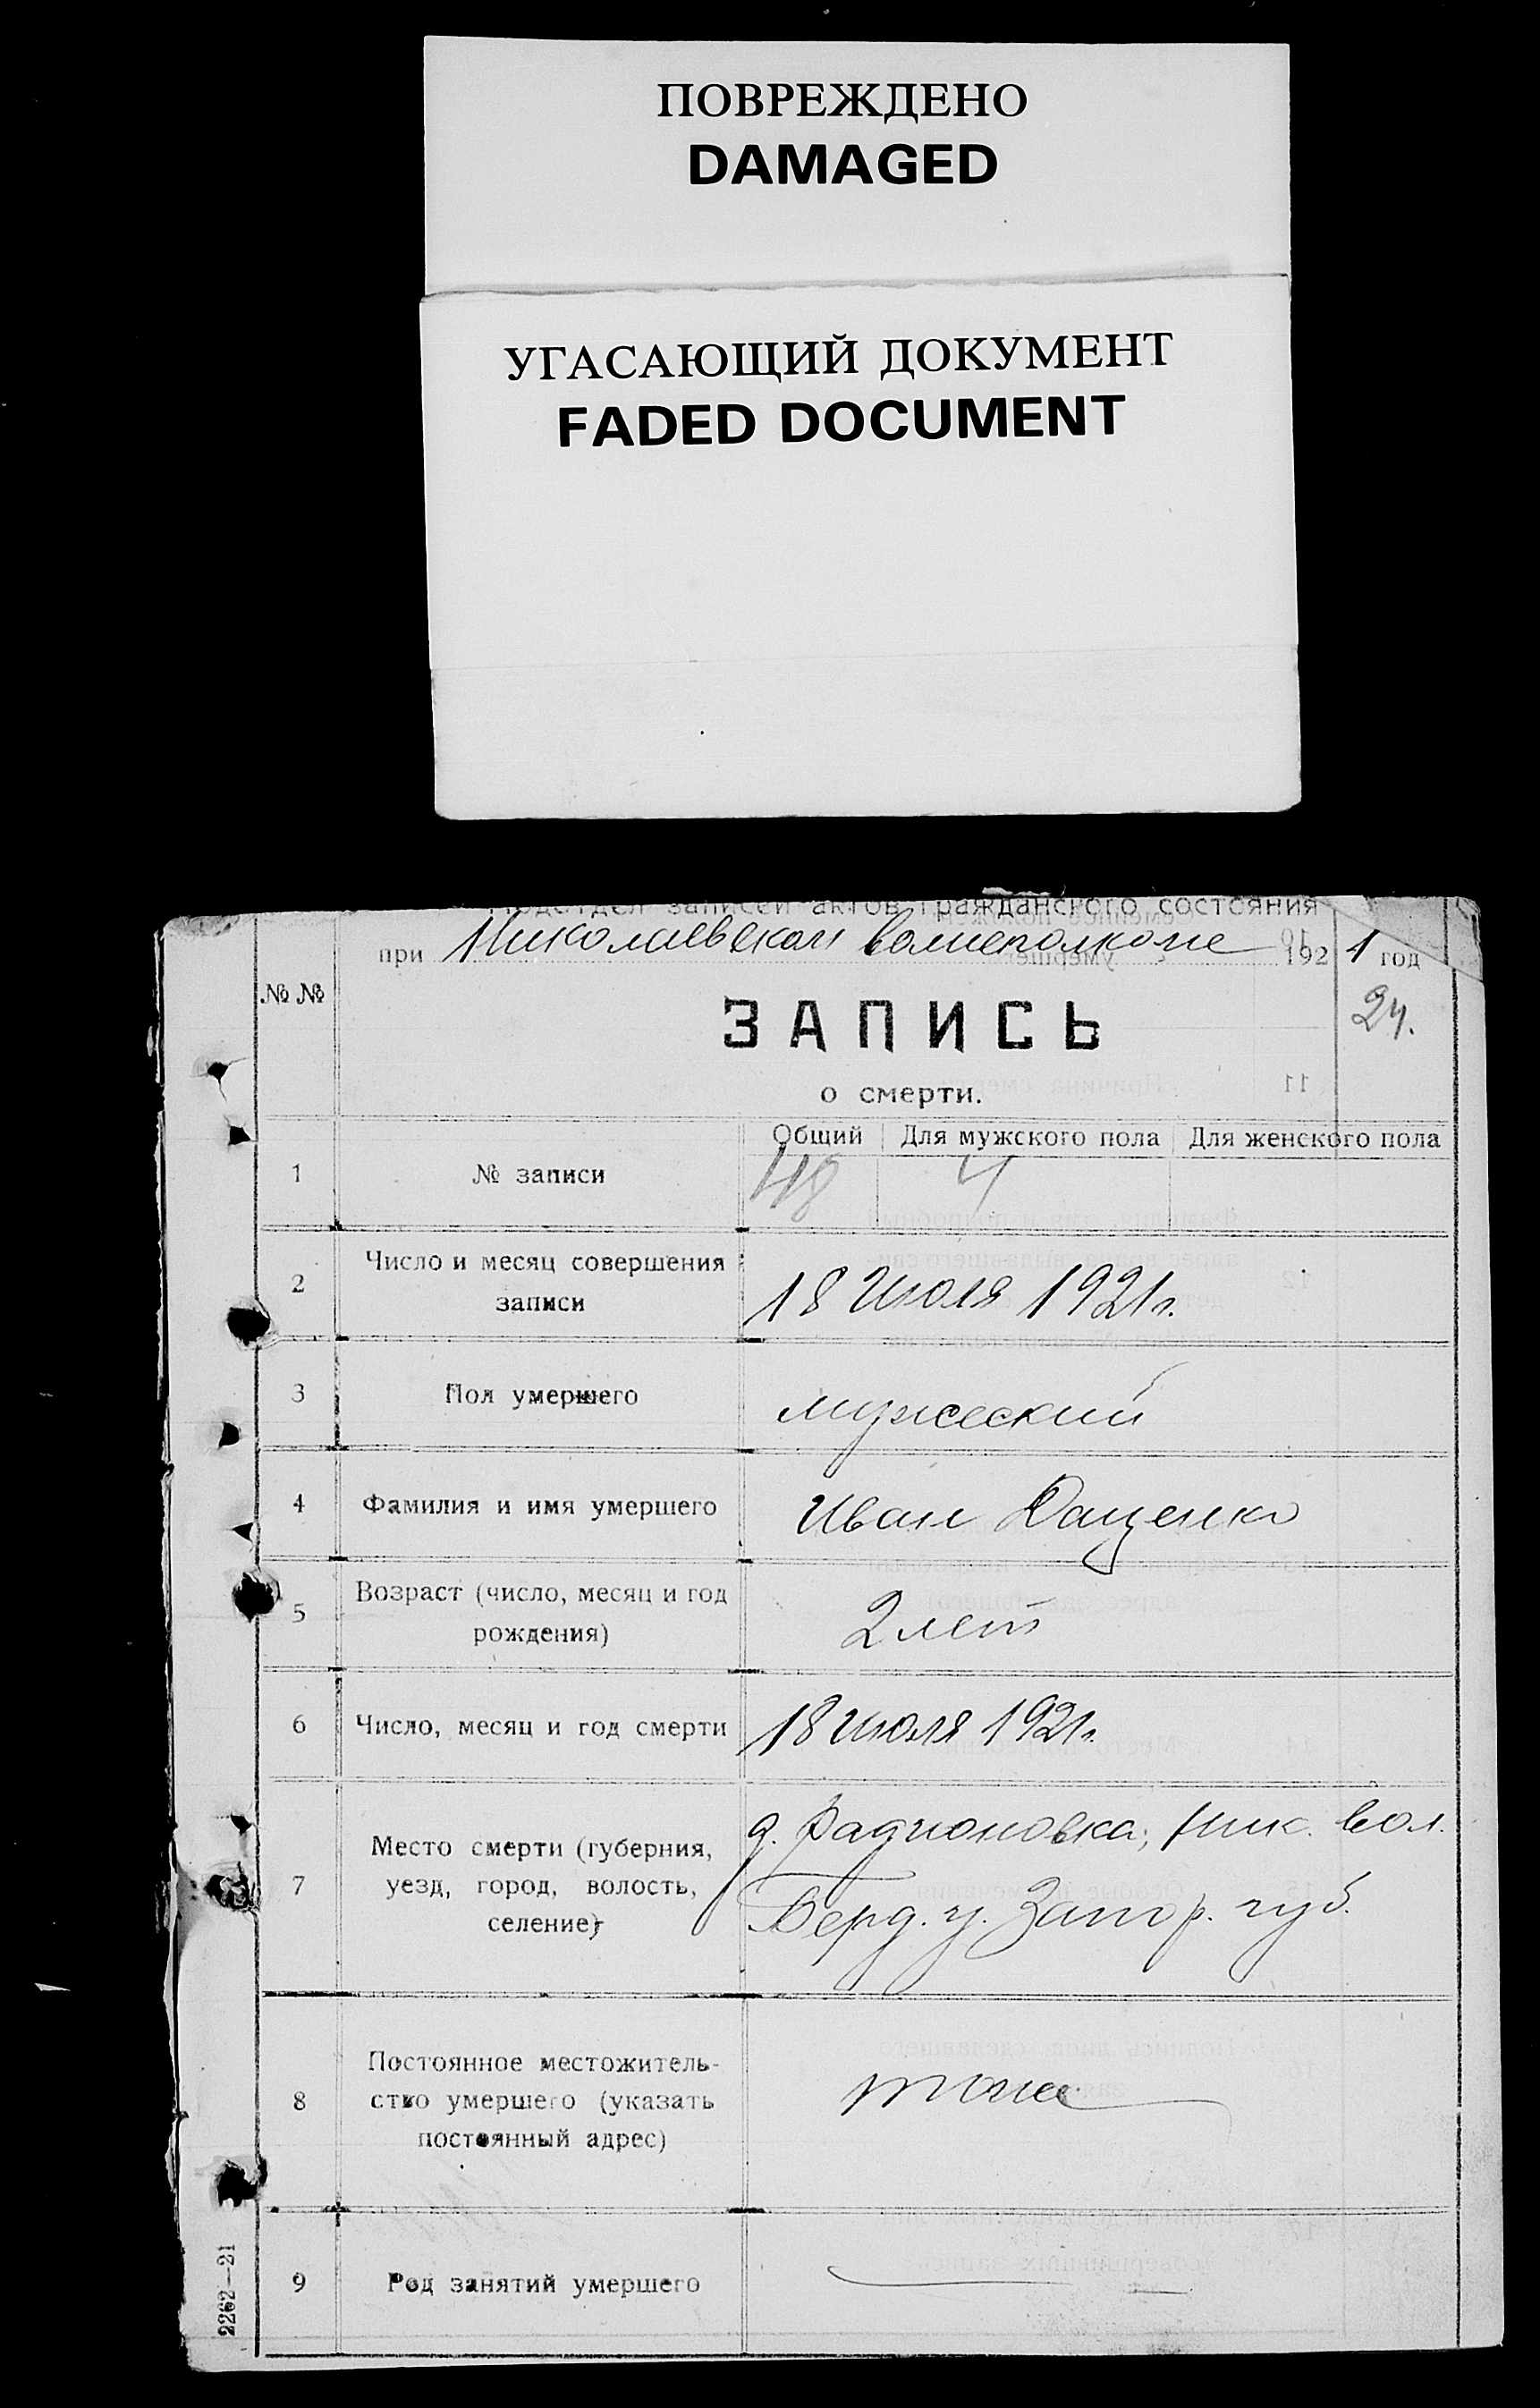 ПОВРЕЖДЕНО
DAMAGED
УГАСАЮЩИЙ ДОКУМЕНТ
FADED DOCUMENT
Подотдел записей актов гражданского состояния
при Николаевском 1921 год
24.
№№
ЗАПИСЬ
о смерти.
Общий Для мужского пола Для женского пола
1 № записи 48 4
2 Число и месяц совершения
записи
18 Июля 1921 г.
3 Пол умершего мужеский
4 Фамилия и имя умершего Иван Даценко
5 Возраст (число, месяц и год
рождения)
2 лет
6 Число, месяц и год смерти 18 Июля 1921 г.
7 Место смерти (губерния,
уезд, город, волость,
селение)
д. Радионовка, Ник. вол.
Берд. у. Запор. губ.
8 Постоянное местожитель-
ство умершего (указать
постоянный адрес)
9 Род занятий умершего
2262—21